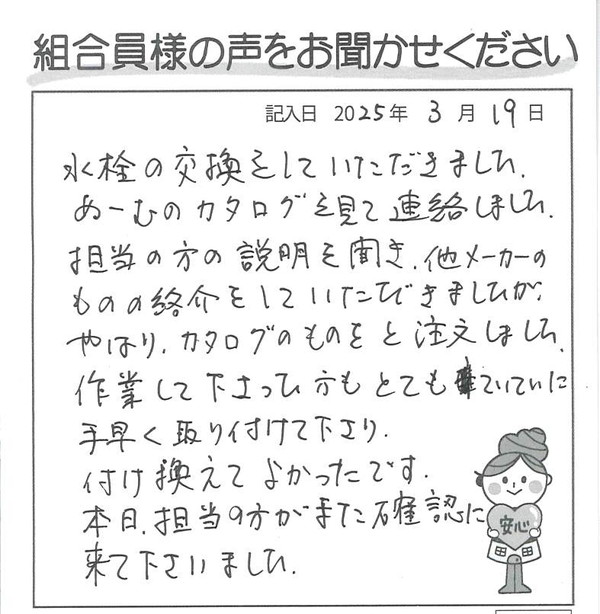 組合員様の声をお聞かせください
記入日 2025年 3月 19日
水栓の交換をしていただきました。
ぬーむのカタログを見て連絡しました。
担当の方の説明を聞き、他メーカーの
ものの紹介をしていただきましたが、
やはり、カタログのものをと注文しました。
作業して下さった方もとてもていていに
手早く取り付けて下さり、
付け換えてよかったです。
本日、担当の方がまた確認に
来て下さいました。
安心